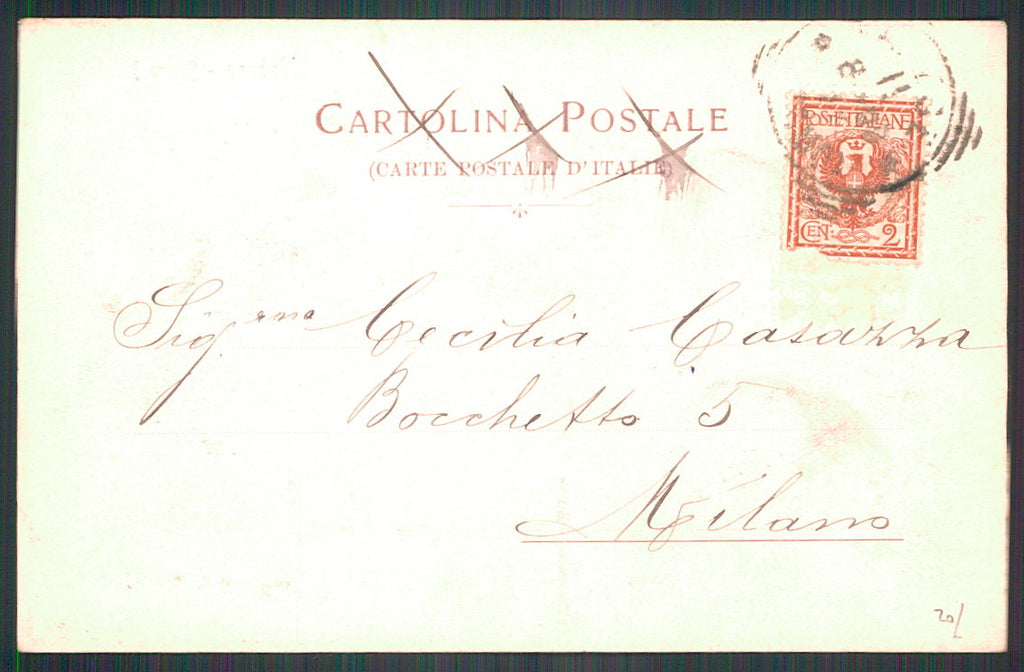 CARTOLINA POSTALE
(CARTE POSTALE D'ITALIE)
POSTE·ITALIANE
CEN: 2
Sig.rina Cecilia Casazza
Bocchetto 5
Milano
20/